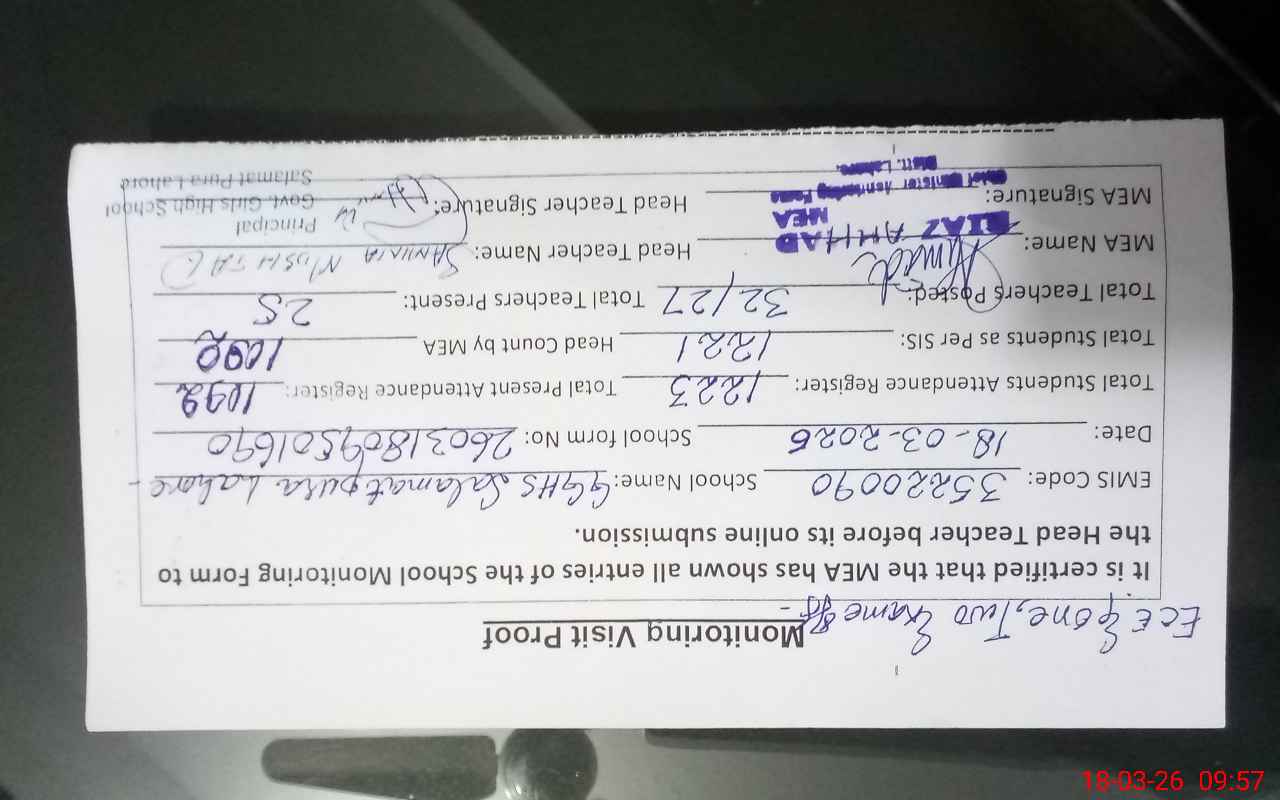 Monitoring Visit Proof
ECE & One, Two Exame off -
It is certified that the MEA has shown all entries of the School Monitoring Form to
the Head Teacher before its online submission.
EMIS Code: 35220090 School Name: GGHS Salamat pura Lahore -
Date: 18-03-2026 School form No: 26031809501690
Total Students Attendance Register: 1223 Total Present Attendant Register: 1092
Total Students as Per SIS: 1221 Head Count by MEA 1090
Total Teachers Posted: 32/27 Total Teachers Present: 25
MEA Name: RIAZ AHMAD Head Teacher Name:
MEA
MEA Signature: Head Teacher Signature:
Chief Minister Monitoring Force
Distt. Lahore.
Principal
Govt. Girls High School
Salamat Pura Lahore
18-03-26 09:57